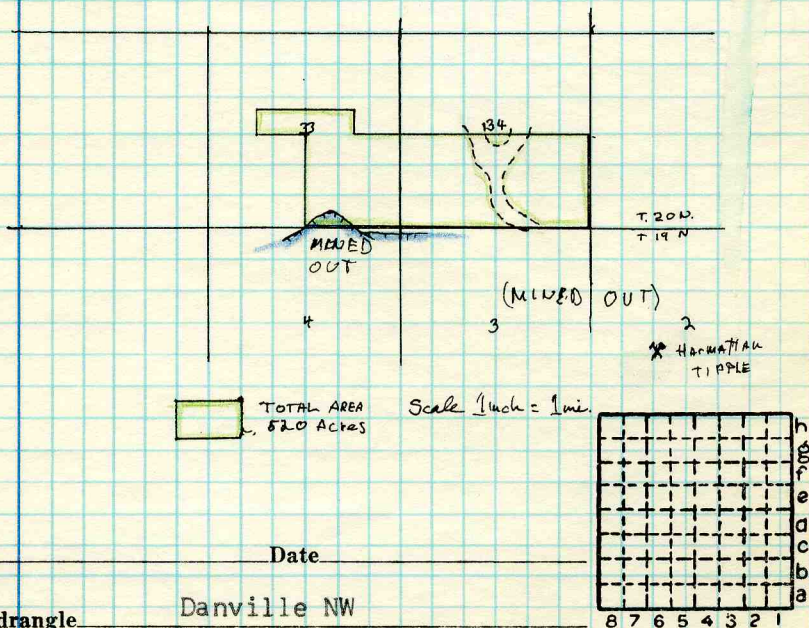 33
34
T. 20 N.
T 19 N
MINED
OUT
(MINED OUT)
4
3
2
HARMATTAN
TIPPLE
TOTAL AREA
520 Acres
Scale 1 inch = 1 mi.
h
g
f
e
d
c
b
a
8 7 6 5 4 3 2 1
Date
drangle Danville NW